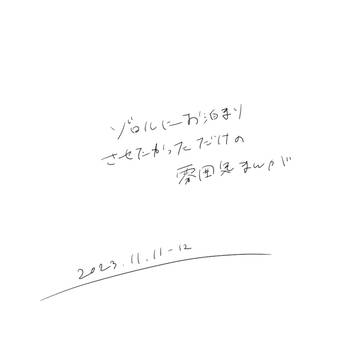 ゾロルにお泊まり
させたかっただけの
雰囲気まんが
2023.11.11-12